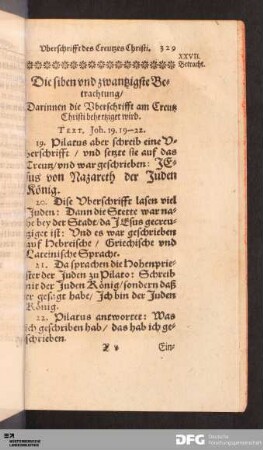 Vberschrifft des Creutzes Christi. 329
XXVII.
Betracht.
Die siben vnd zwantzigste Be-
trachtung/
Darinnen die Vberschrifft am Creutz
Christi behertziget wird.
TEXT. Joh. 19. 19-22.
19. Pilatus aber schreib eine V-
berschrifft / vnd setzte sie auf das
Creutz/vnd war geschrieben: JE-
sus von Nazareth der Juden
König.
20. Dise Vberschrifft lasen viel
Juden: Dann die Stette war na-
he bey der Stadt/da JEsus gecreu-
tziget ist: Vnd es war geschrieben
auf Hebreische / Griechische vnd
Lateinische Sprache.
21. Da sprachen die Hohenprie-
ster der Juden zu Pilato: Schreib
nit der Juden König/sondern daß
er gesagt habe / Jch bin der Juden
König.
22. Pilatus antwortet: Was
ich geschriben hab / das hab ich ge-
schrieben.
Ein-
DFG Deutsche
Forschungsgemeinschaft